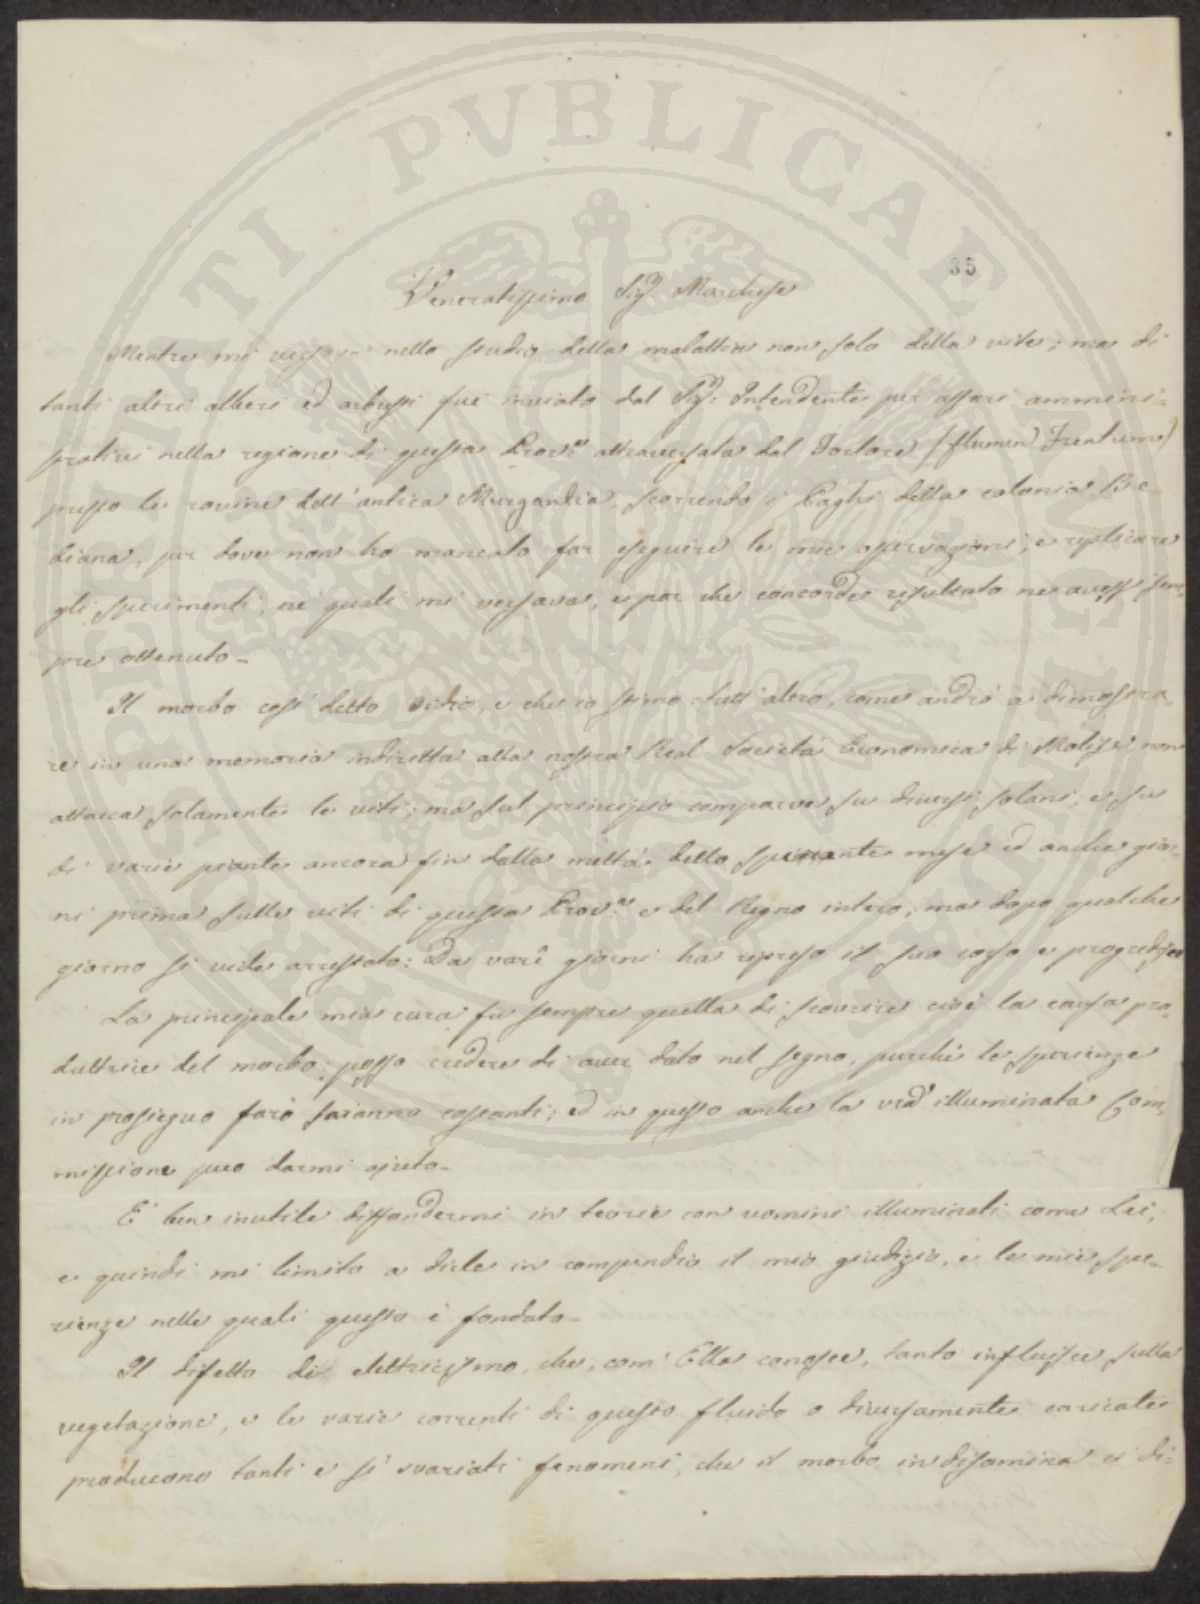 35
Veneratissimo Sig.r Marchese
Mentre mi versava nello studio della malattia non solo della vite; ma di
tanti altri alberi ed arbusti fui inviato dal Sig.r Intendente per affari ammini=
strativi nella regione di questa Prov.a attraversata dal Fortore (flumen Frentum)
presso le rovine dell'antica Murgantia, scorrendo i Paghi della colonia Be-
biana, per dove non ho mancato far eseguire le mie osservazioni, e replicare
gli sperimenti, ne' quali mi versava, e par che concorde resultato ne avessi sem-
pre ottenuto_
Il morbo così detto Oidio, e che io stimo tutt'altro, come andrò a dimostra-
re in una memoria indiretta alla nostra Real Società Economica di Molise non
attacca solamente le viti; ma sul principio comparve su diversi solani, e su
di varie piante ancora fin dalla mettà dello spirante mese ed anche gior-
ni prima sulle viti di questa Prov.a e del Regno intero, ma dopo qualche
giorno si vide arrestato: Da varî giorni ha ripreso il suo corso e progredisce
La principale mia cura fu sempre quella di scovrire cioè la causa pro-
duttrice del morbo; posso credere di aver dato nel segno, purchè le sperienze
in prosieguo farò saranno costanti; ed in questo anche la illuminata Com-
missione può darmi ajuto_
E' ben inutile diffondermi in teorie con uomini illuminati come Lei,
e quindi mi limito a dirle in compendio il mio giudizio, e le mie spe-
rienze nelle quali questo è fondato_
Il difetto di elettricismo, che, com' Ella conosce, tanto influisce sulla
vegetazione, e le varie correnti di questo fluido o diversamente caricate
producono tanti e sì svariati fenomeni, che il morbo in disamina ci di=
PROSPERITATI PVBLICAE